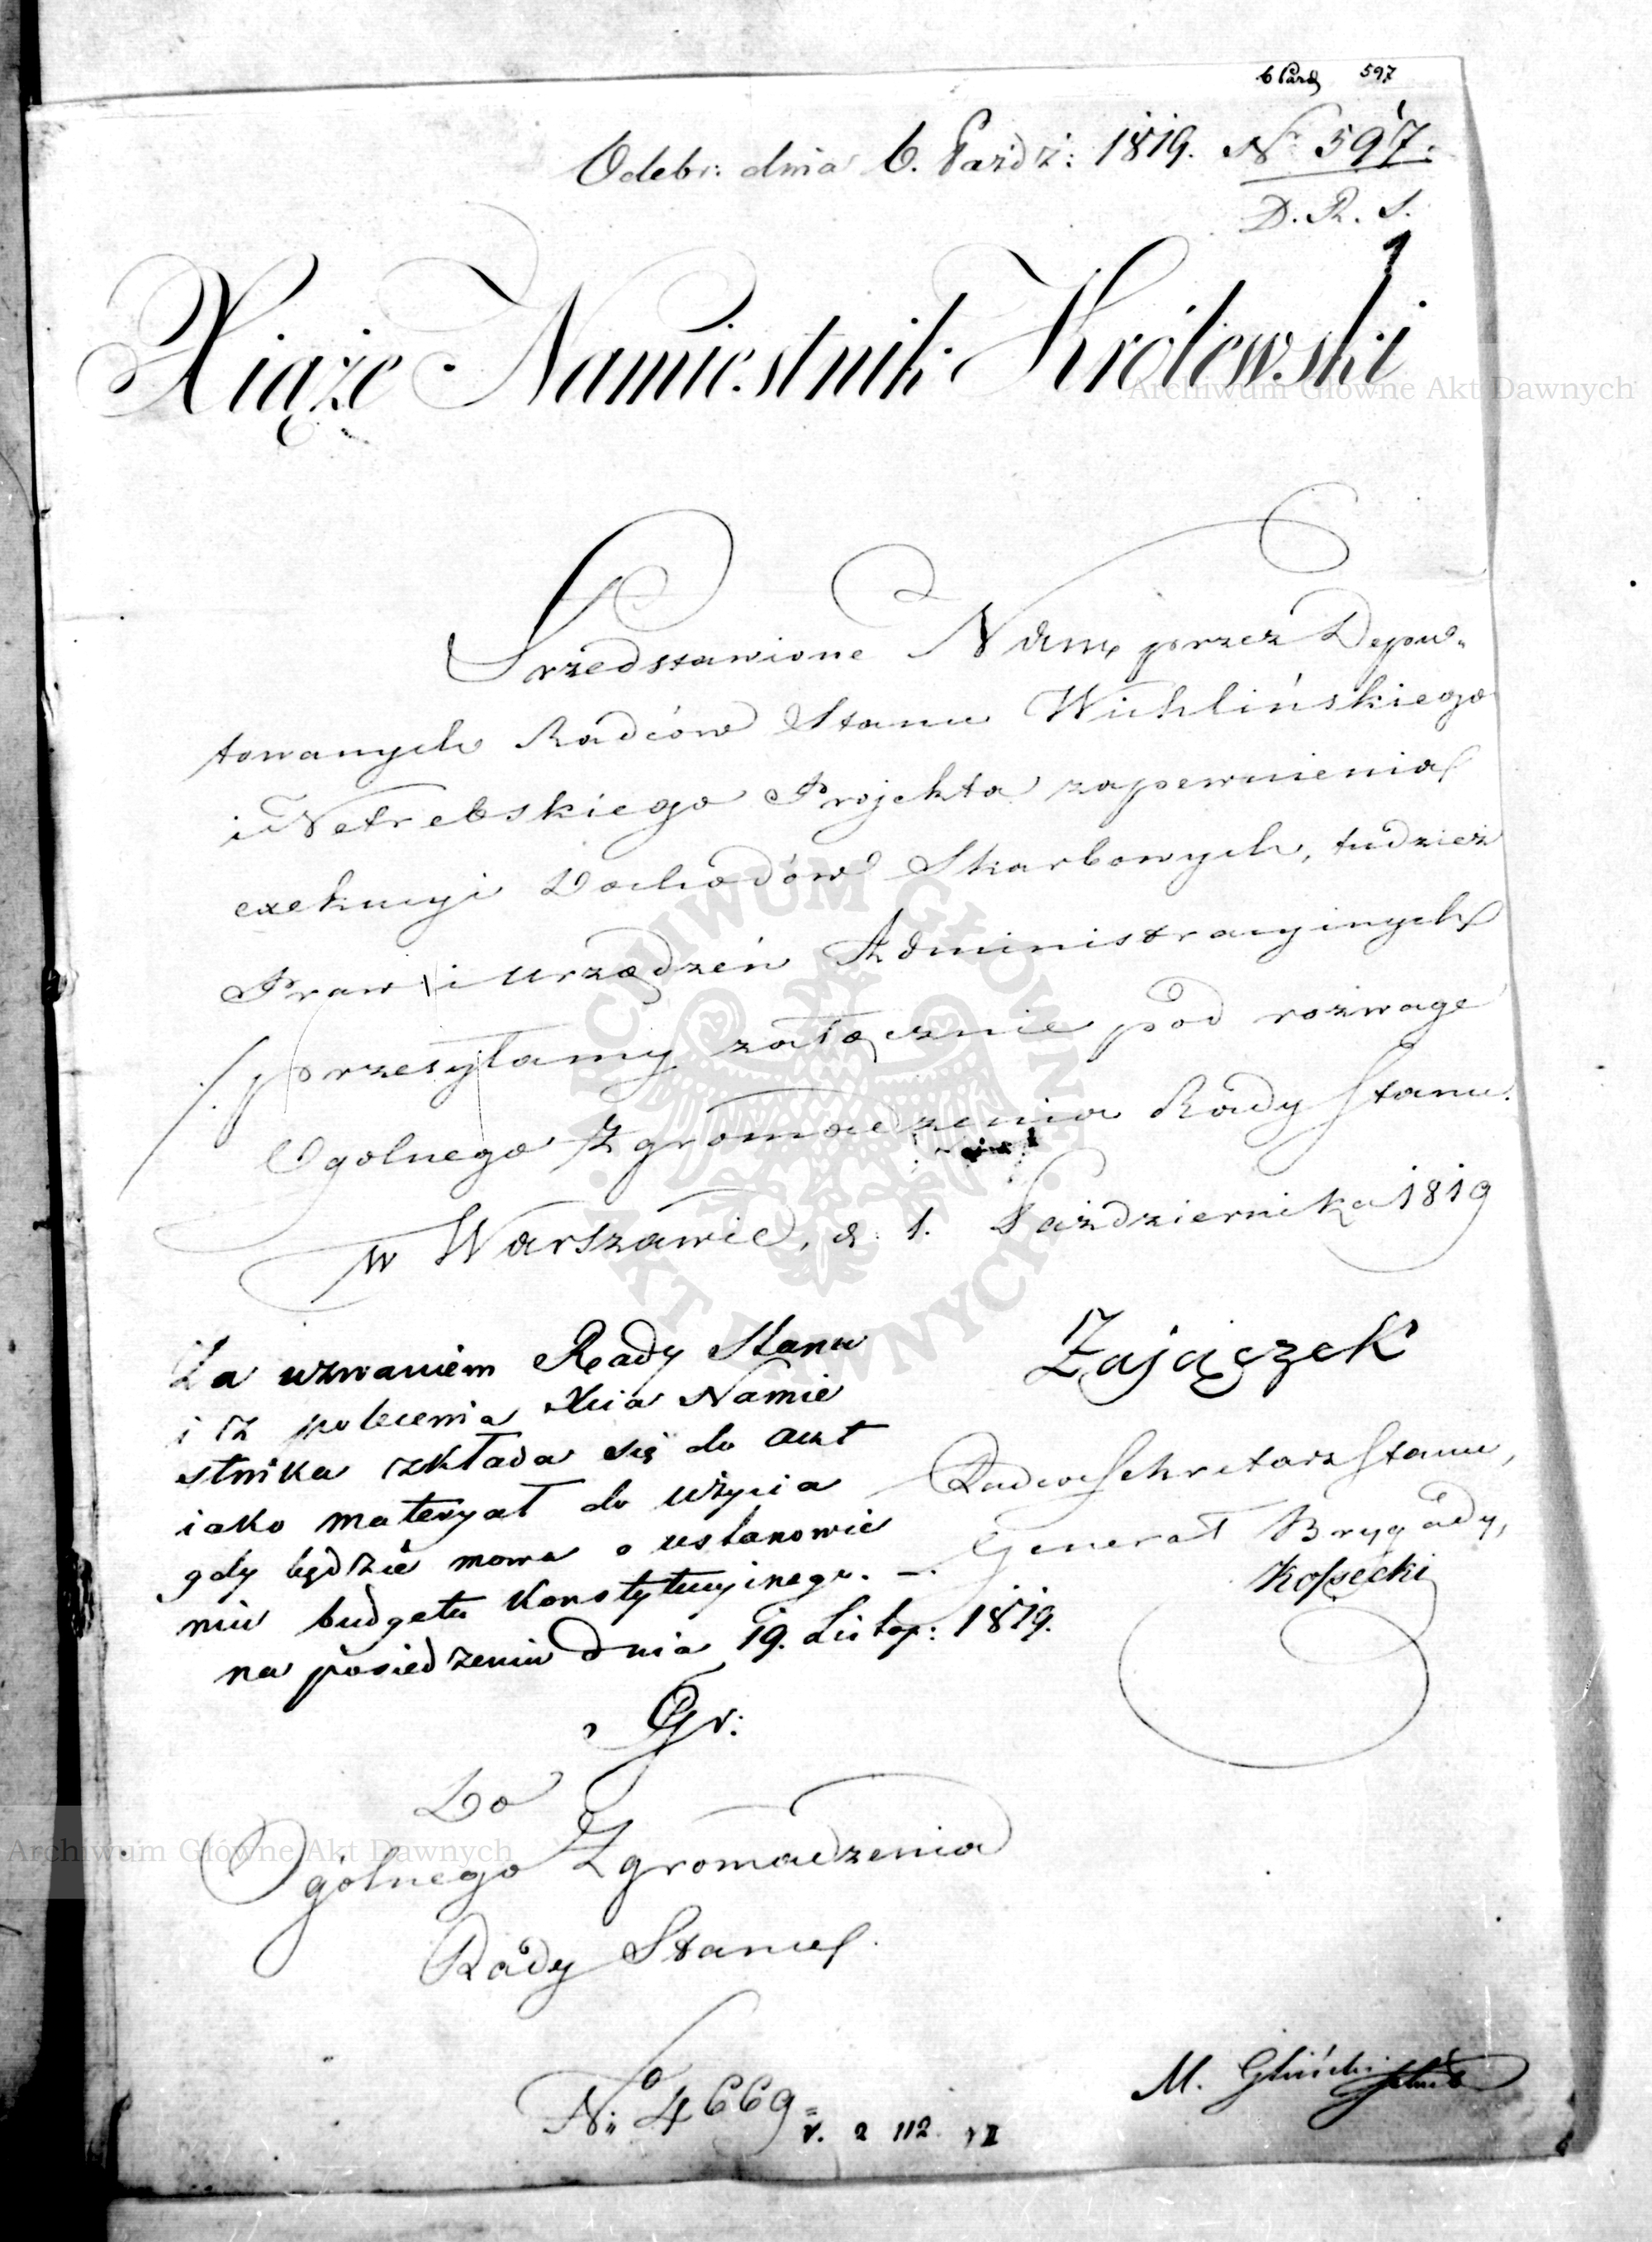 6 Paźd 597
Odebr: dnia 6. Paźdz: 1819. Nr 597.
D. R. S.
1
Xiąże Namiestnik Królewski
Przedstawione Nam przez Depu-
towanych Radców Stanu Wichlińskiego
i Netrebskiego Projekta zapewnienia
exekucyi Dochodów Skarbowych, tudzież
Praw i urządzeń Administracyinych
przesyłamy załącznie pod rozwagę
Ogolnego Zgromadzenia Rady Stanu.
w Warszawie, d: 1. Października 1819
Zajączek
Radca Sekretarz Stanu,
Generał Brygády,
Kossecki
Za uznaniem Rady Stanu
i z polecenia Xcia Namie
stnika zkłada się do akt
iako materyał do użycia
gdy będzie mowa o ustanowie
niu budgetu Konstytucyinego. —
na posiedzeniu dnia 19. Listop: 1819.
Gr:
Do
Ogólnego Zgromadzenia
Rady Stanu.
No 4669
v. 2 112 VI
M. Gliński
Archiwum Główne Akt Dawnych
Archiwum Główne Akt Dawnych
ARCHIWUM GŁÓWNE AKT DAWNYCH